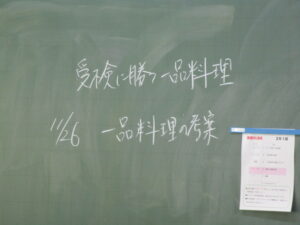 受検に勝つ一品料理
11/26 一品料理の考案